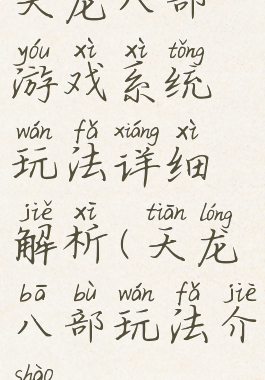 天龙八部
yóu xì xì tǒng
游戏系统
wán fǎ xiáng xì
玩法详细
jiě xī tiān lóng
解析(天龙
bā bù wán fǎ jiè
八部玩法介
shào